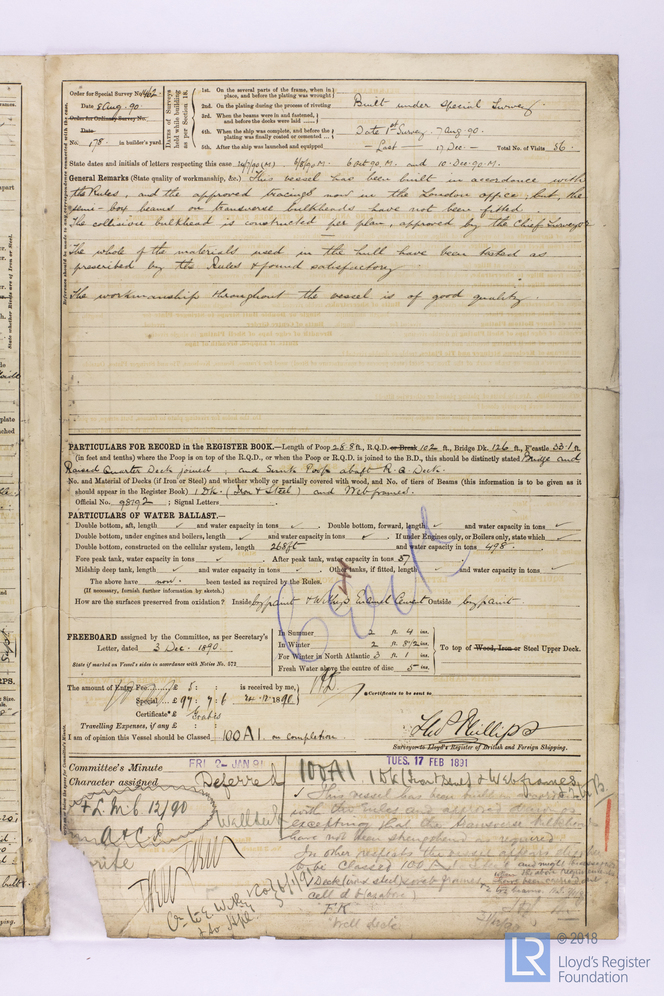 Order for Special Survey No
Date 8 Aug. 90
Order for Ordinary Survey No.
Date
No. 178 in builder's yard.
Dates of Surveys held while building as per Section 18.
1st. On the several parts of the frame, when in place, and before the plating was wrought
2nd. On the plating during the process of riveting
3rd. When the beams were in and fastened, and before the decks were laid
4th. When the ship was complete, and before the plating was finally coated or cemented
5th. After the ship was launched and equipped
Built under Special Survey
Date 1st Survey 7 Aug. 90.
Last 17 Dec. Total No. of Visits 56
State dates and initials of letters respecting this case 6 Oct 90. M. and 10. Dec. 90. M.
General Remarks (State quality of workmanship, &c.) This vessel has been built in accordance with
the Rules, and the approved tracings now in the London office; but, the
semi-box beams on transverse bulkheads have not been fitted.
The collision bulkhead is constructed per plan, approved by the Chief Surveyor
The whole of the materials used in the hull have been tested as
prescribed by the Rules & found satisfactory
The workmanship throughout the vessel is of good quality.
PARTICULARS FOR RECORD in the REGISTER BOOK.—Length of Poop 28.8 ft., R.Q.D. or Break 102 ft., Bridge Dk. 126 ft., F'castle 33.1 ft
(in feet and tenths) where the Poop is on top of the R.Q.D., or when the Poop or R.Q.D. is joined to the B.D., this should be distinctly stated Bridge and
Raised Quarter Deck joined, and Sunk Poop abaft R.Q. Deck.
No. and Material of Decks (if Iron or Steel) and whether wholly or partially covered with wood, and No. of tiers of Beams (this information is to be given as it
should appear in the Register Book) 1 Dk. (Iron & Steel) and Web frames.
Official No. 98192 ; Signal Letters
PARTICULARS OF WATER BALLAST.—
Double bottom, aft, length ✓ and water capacity in tons ✓ . Double bottom, forward, length ✓ and water capacity in tons ✓
Double bottom, under engines and boilers, length ✓ and water capacity in tons ✓ If under Engines only, or Boilers only, state which ✓
Double bottom, constructed on the cellular system, length 268 ft and water capacity in tons 498.
Fore peak tank, water capacity in tons ✓ . After peak tank, water capacity in tons 57
Midship deep tank, length ✓ and water capacity in tons ✓ . Other tanks, if fitted, length ✓ and water capacity in tons ✓
The above have now been tested as required by the Rules.
(If necessary, furnish further information by sketch.)
How are the surfaces preserved from oxidation? Inside by paint Cement Outside by paint.
FREEBOARD assigned by the Committee, as per Secretary's
Letter, dated 3 Dec. 1890
State if marked on Vessel's sides in accordance with Notice No. 572
In Summer 2 ft. 4 ins.
In Winter 2 ft. 8 1/2 ins.
For Winter in North Atlantic 3 ft. 1 ins.
Fresh Water above the centre of disc 5 ins.
To top of Wood, Iron or Steel Upper Deck.
The amount of Entry Fee £ 5 : : is received by me,
Special £ 97 : 7 : 6 1890
Certificate* £ Gratis
*Certificate to be sent to
Travelling Expenses, if any £ : :
I am of opinion this Vessel should be Classed 100 A1. on completion.
Thos Phillips
Surveyor to Lloyd's Register of British and Foreign Shipping.
Committee's Minute FRI. 2- JAN 91
Character assigned Deferred
TUES. 17 FEB 1891
100A1 1 Dk (Iron & Steel) & Web frames
+ L.M.C. 12/90
A & C.P.
Well deck
write
This vessel has been built in accordance
with the rules and approved
excepting that the transverse bulkheads
have not been strengthened as required
In other respects the vessel appears
to be Classed 100 A
F.K.
Well deck
© 2018
LR
Lloyd's Register
Foundation